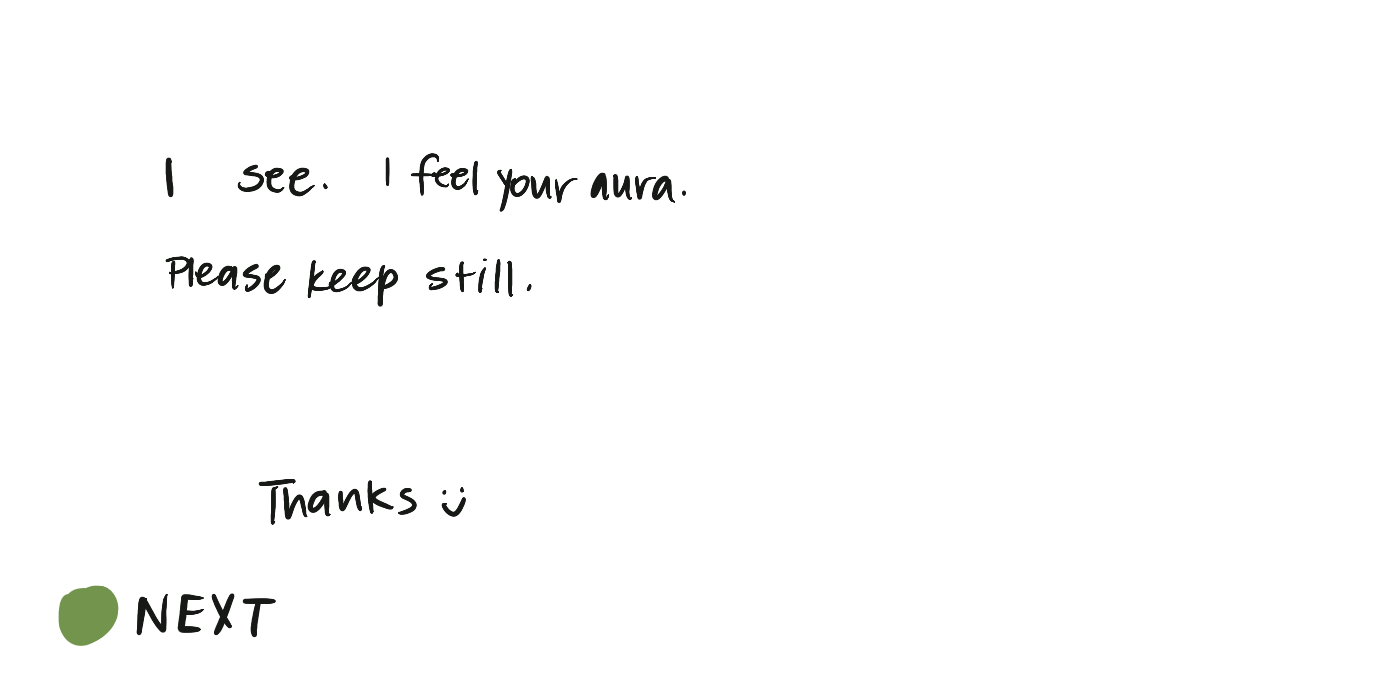 I see. I feel your aura.
Please keep still.
Thanks :)
NEXT